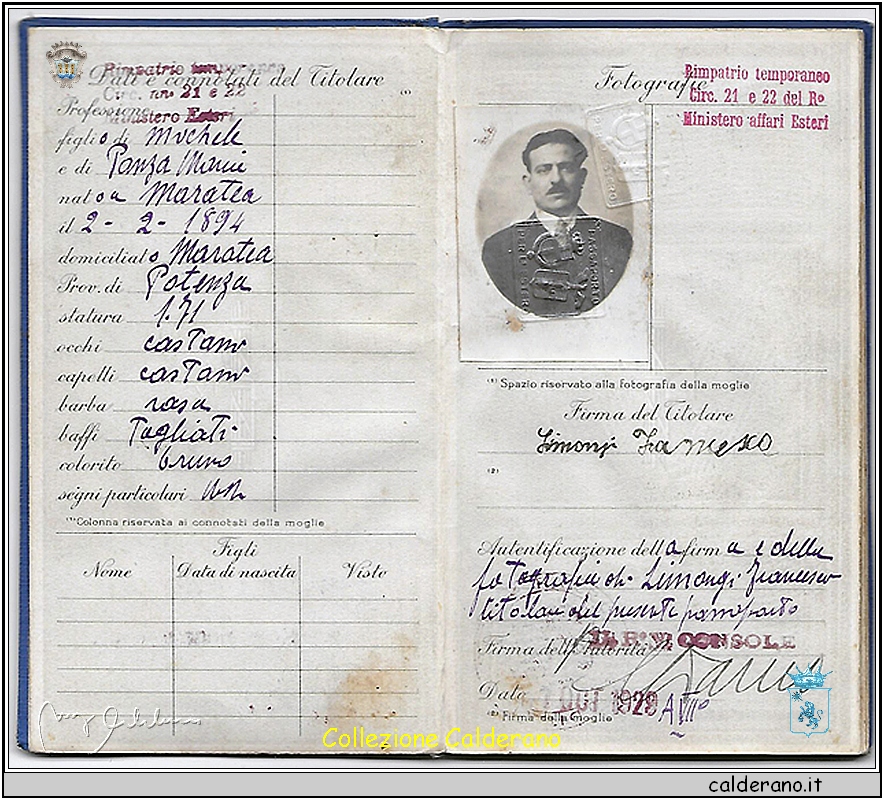 Rimpatrio temporaneo
Dati e connotati del Titolare
(1)
Circ. nn° 21 e 22
Professione
Ministero Esteri
figlio di Michele
e di Panza Maria
nato a Maratea
il 2 - 2 - 1894
domiciliato Maratea
Prov. di Potenza
statura 1.71
occhi castano
capelli castano
barba rasa
baffi Tagliati
colorito bruno
segni particolari
(1) Colonna riservata ai connotati della moglie
Figli
Nome Data di nascita Visto
Fotografie
Rimpatrio temporaneo
Circ. 21 e 22 del R°
Ministero affari Esteri
PASSAPORTO
PER L'ESTERO
(2) Spazio riservato alla fotografia della moglie
Firma del Titolare
Limongi Francesco
(2)
Autentificazione della firma e della
fotografia di Limongi Francesco
titolare del presente passaporto
Firma dell'Autorità
IL Rº V. CONSOLE
Data OUT 1929 A VIIIº
(2) Firma della moglie
Collezione Calderano
calderano.it